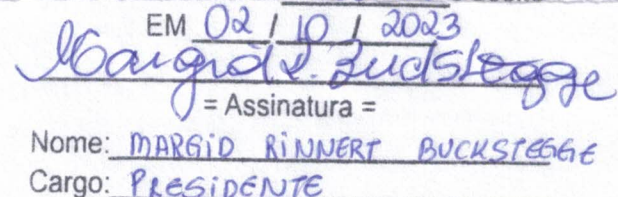 EM 02 / 10 / 2023
Margid R. Buckstegge
= Assinatura =
Nome: MARGID RINNERT BUCKSTEGGE
Cargo: PRESIDENTE